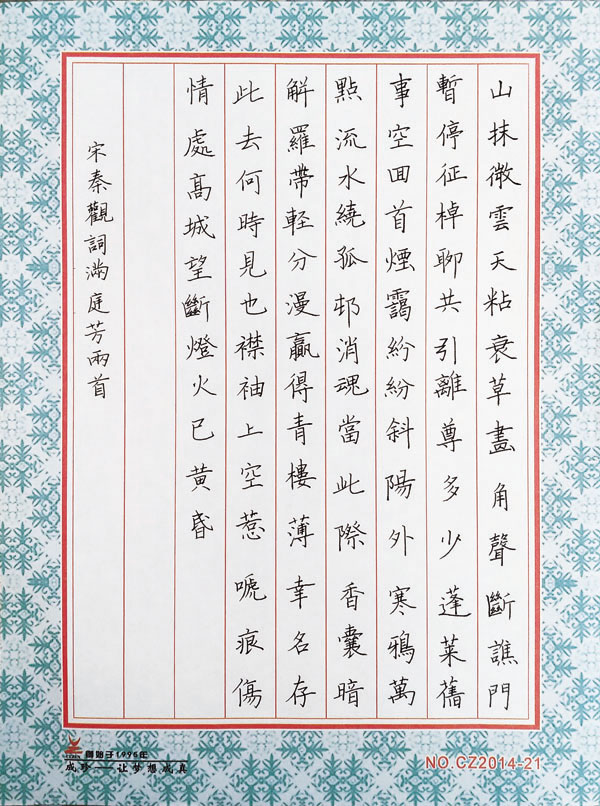 山抹微雲天粘衰草畫角聲斷譙門
暫停征棹聊共引離尊多少蓬萊舊
事空回首煙靄紛紛斜陽外寒鴉萬
點流水繞孤邨消魂當此際香囊暗
解羅帶輕分漫贏得青樓薄幸名存
此去何時見也襟袖上空惹唬痕傷
情處高城望斷燈火已黃昏
宋秦觀詞滿庭芳兩首
创始于1996年
成珍——让梦想成真
NO.CZ2014-21